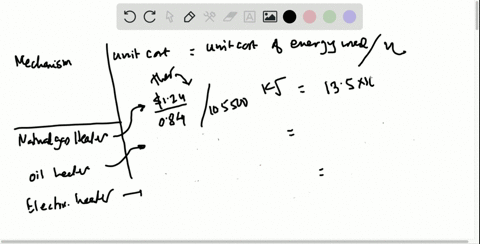 Mechanism
unit cost = unit cost of energy used / η
ther
$1.24 / 0.84 / 105500 KJ = 13.5 × 10
Natural gas Heater
=
oil heater
=
Electric. heater